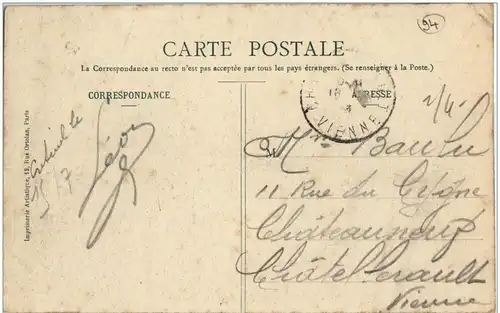 94
CARTE POSTALE
La Correspondance au recto n'est pas acceptée par tous les pays étrangers. (Se renseigner à la Poste.)
CORRESPONDANCE
ADRESSE
VIENNE
Imprimerie Artistique, 13, Rue Ortolan, Paris
Léon
Baulu
11 Rue du Cygne
Châteauneuf
Châtellerault
Vienne